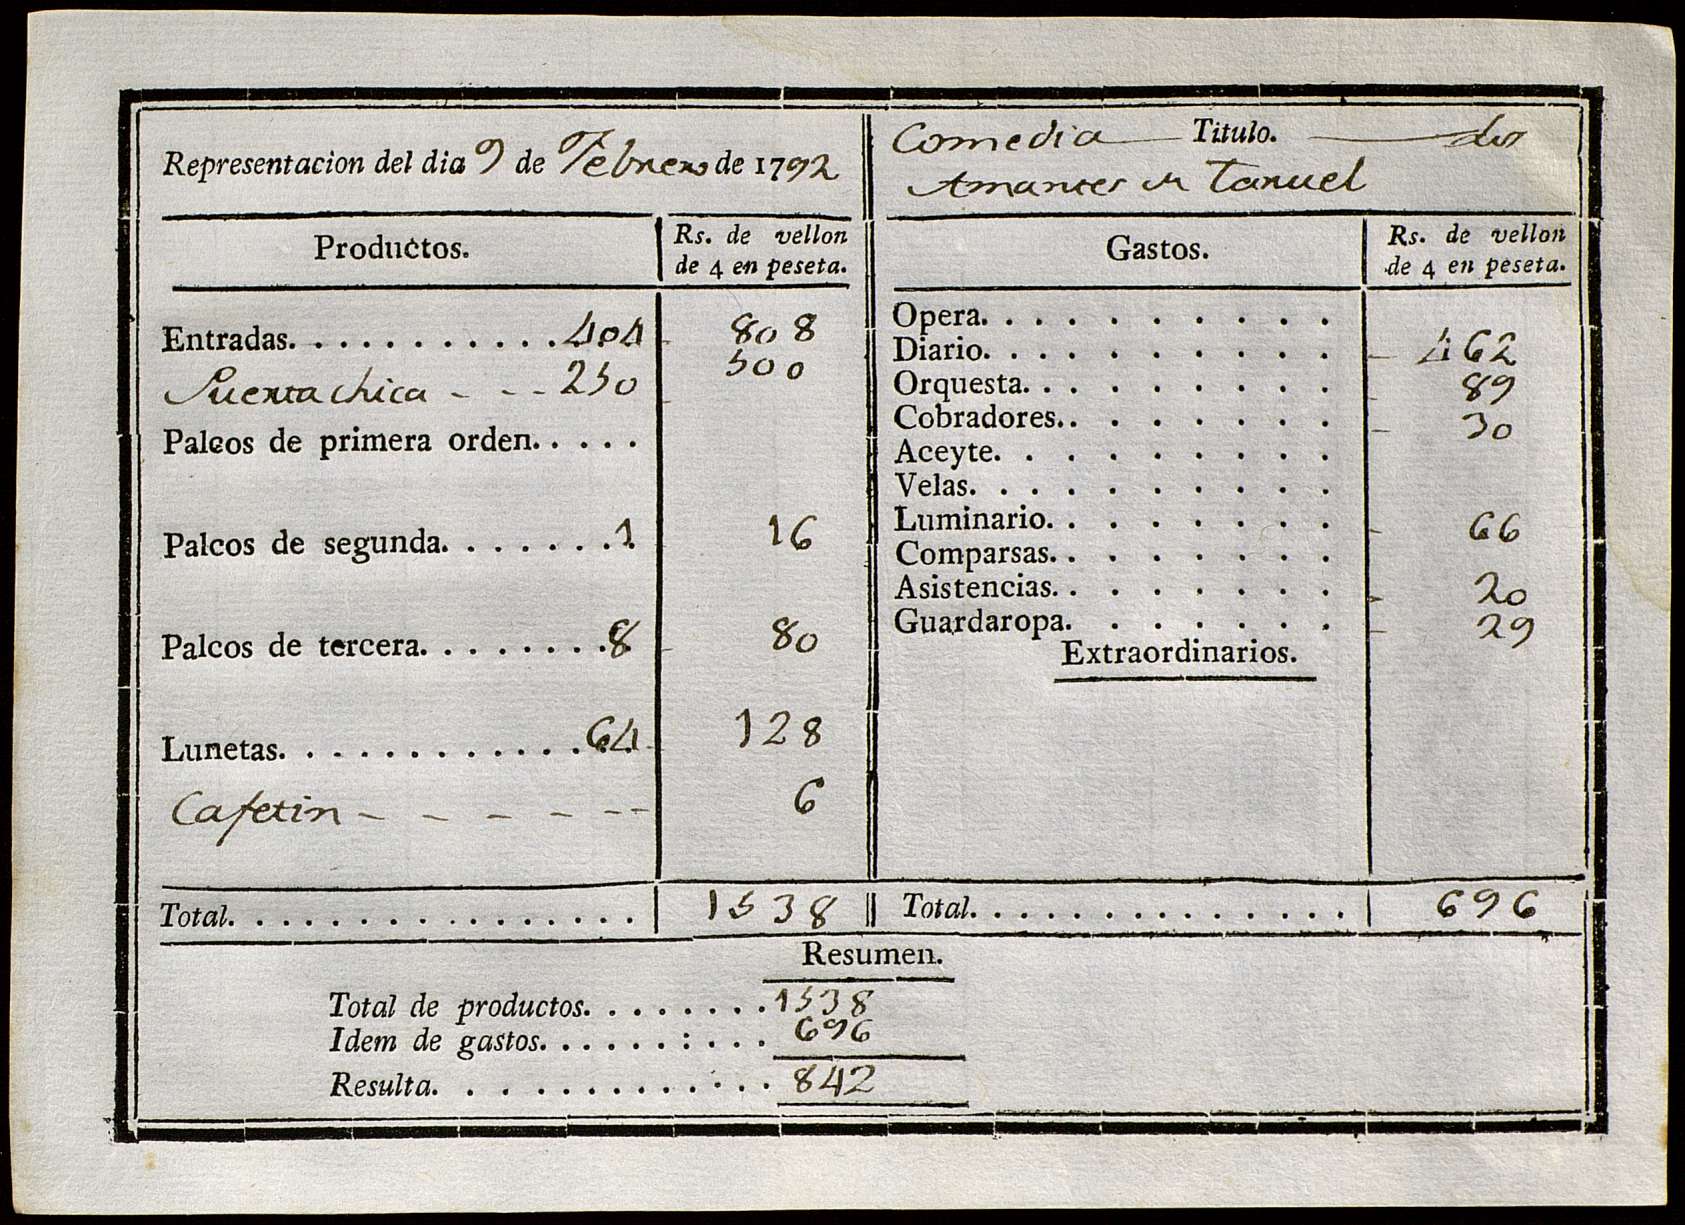 Representacion del dia 9 de Febrero de 1792
Comedia Titulo. Los
Amantes de Taruel
Productos. Rs. de vellon
de 4 en peseta.
Entradas. 404 808
Puerta chica 250 500
Palcos de primera orden.
Palcos de segunda. 1 16
Palcos de tercera. 8 80
Lunetas. 64 128
Cafetin 6
Total. 1538
Gastos. Rs. de vellon
de 4 en peseta.
Opera.
Diario. 462
Orquesta. 89
Cobradores. 30
Aceyte.
Velas.
Luminario. 66
Comparsas.
Asistencias. 20
Guardaropa. 29
Extraordinarios.
Total. 696
Resumen.
Total de productos. 1538
Idem de gastos. 696
Resulta. 842